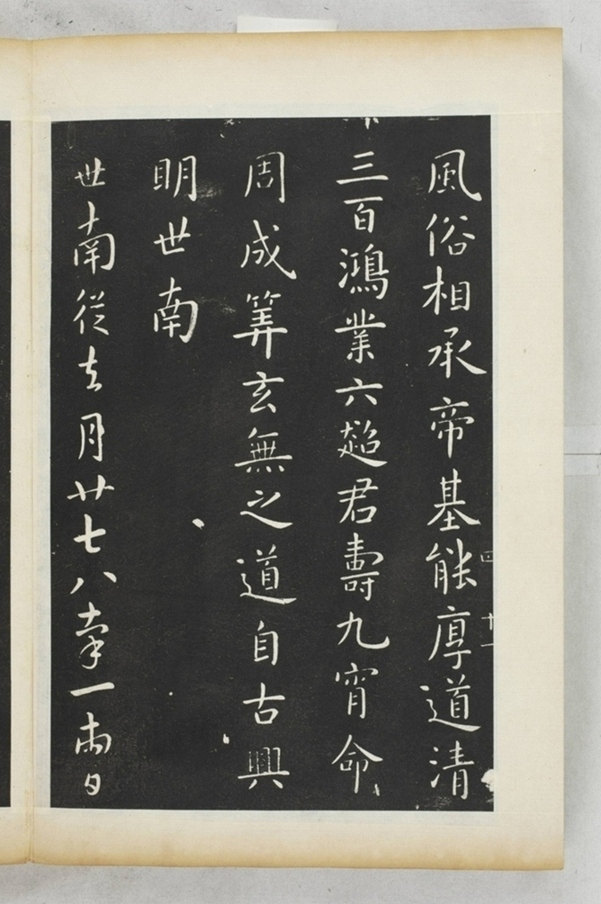 風俗相承帝基能厚道清
三百鴻業六超君壽九宵命
周成筭玄無之道自古興
明世南
世南從去月廿七八率一兩日
四
十一